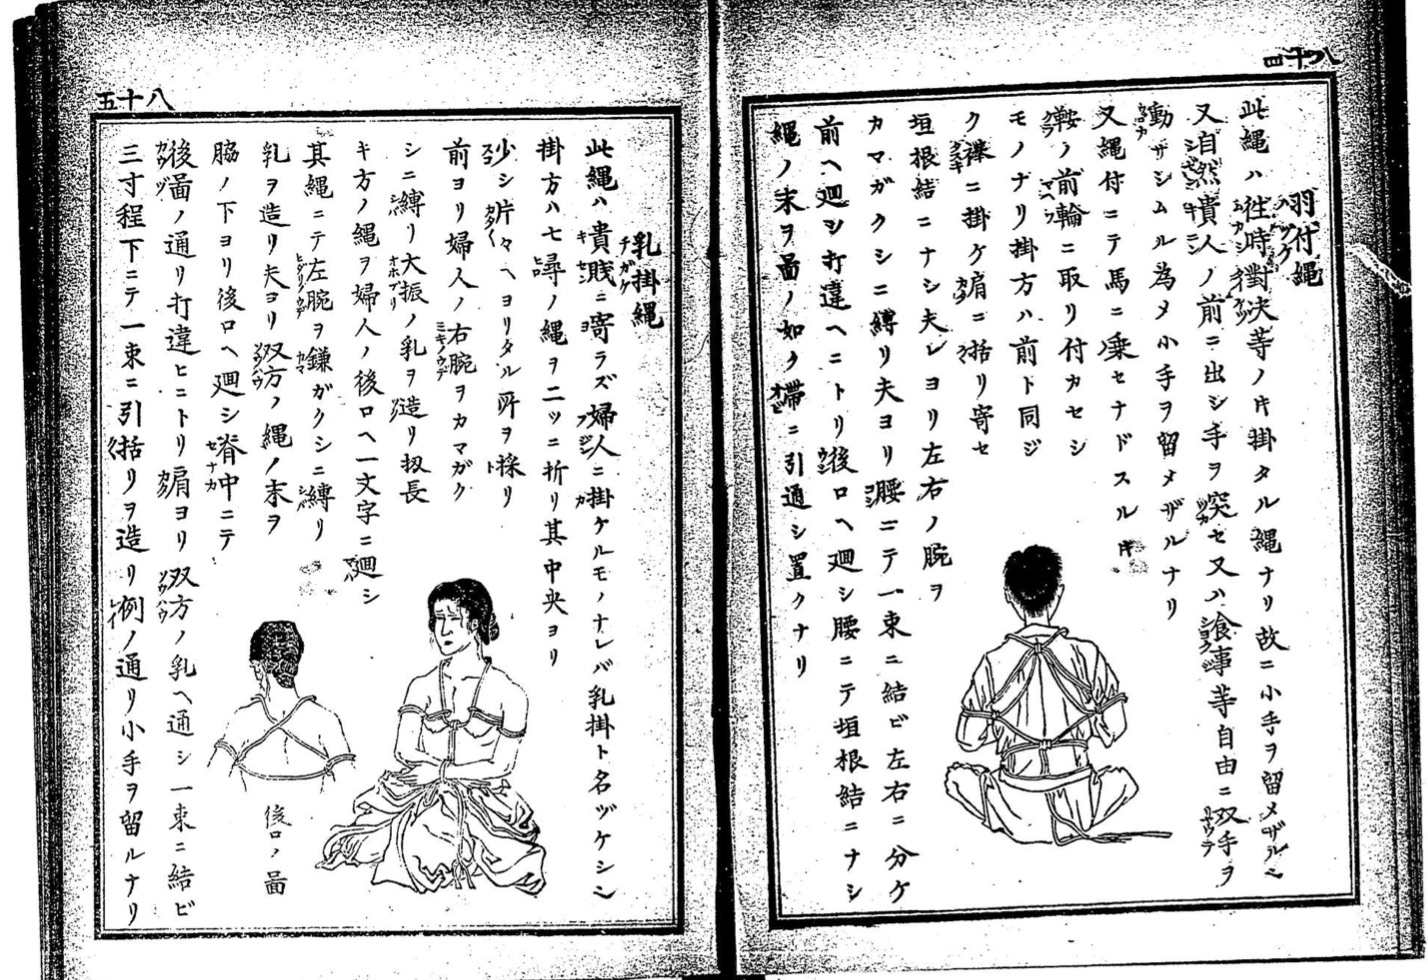 八十四
羽付縄
此縄ハ往時對决等ノ片掛タル縄ナリ故ニ小手ヲ留メザルハ
又自然貴人ノ前ニ出シ手ヲ突セ又ハ飡事等自由ニ双手ヲ
動ザシムル為メ小手ヲ留メザルナリ
又縄付ニテ馬ニ乗セナドスル片
鞍ノ前輪ニ取リ付カセシ
モノナリ掛方ハ前ト同ジ
ク襷ニ掛ケ肩ニ括リ寄セ
垣根結ニナシ夫レヨリ左右ノ腕ヲ
カマガクシニ縛リ夫ヨリ腰ニテ一束ニ結ビ左右ニ分ケ
前ヘ廻シ打違ヘニトリ後ロヘ廻シ腰ニテ垣根結ニナシ
縄ノ末ヲ圖ノ如ク帶ニ引通シ置クナリ
八十五
乳掛縄
此縄ハ貴賎ニ寄ラズ婦人ニ掛ケルモノナレバ乳掛ト名ヅケシハ
掛方ハ七尋ノ縄ヲ二ツニ折リ其中央ヨリ
少シ片々ヘヨリタル所ヲ採リ
前ヨリ婦人ノ右腕ヲカマガク
シニ縛リ大振ノ乳ヲ造リ扨長
キ方ノ縄ヲ婦人ノ後ロヘ一文字ニ廻シ
其縄ニテ左腕ヲ鎌ガクシニ縛リ
乳ヲ造リ夫ヨリ双方ノ縄ノ末ヲ
脇ノ下ヨリ後ロヘ廻シ脊中ニテ
後圖ノ通リ打違ヒニトリ肩ヨリ双方ノ乳ヘ通シ一束ニ結ビ
三寸程下ニテ一束ニ引括リヲ造リ例ノ通リ小手ヲ留ルナリ
後ロノ圖